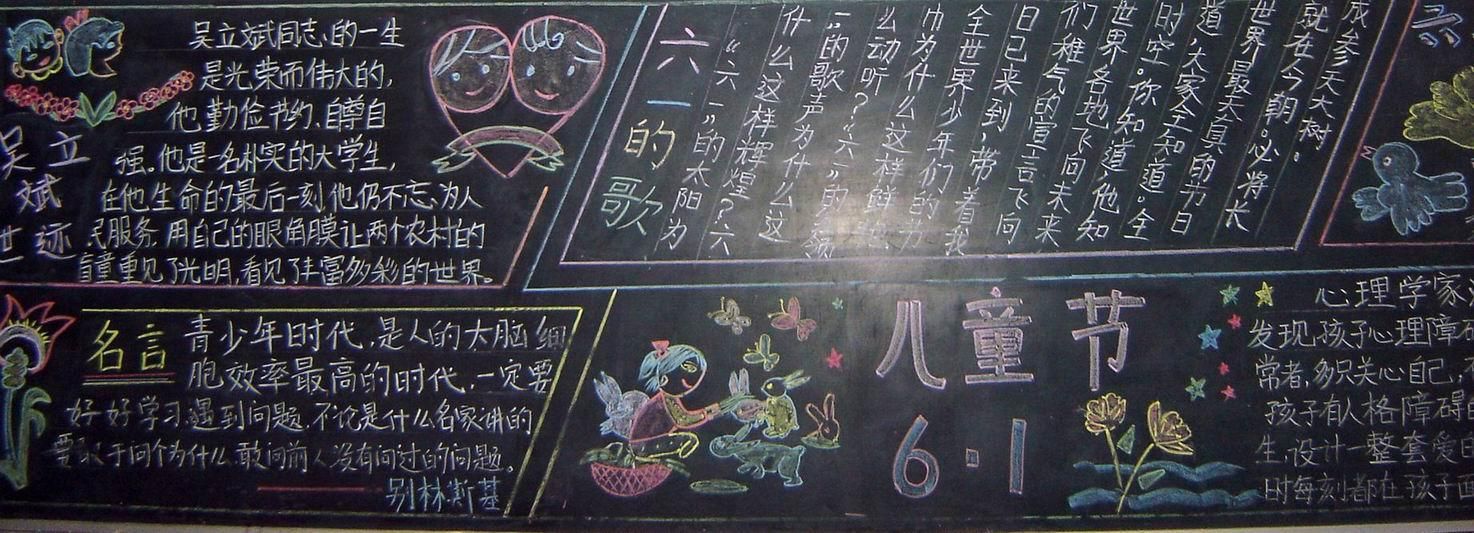 吴立斌同志的一生
是光荣而伟大的,
他勤俭节约、自尊自
强。他是一名朴实的大学生,
在他生命的最后一刻他仍不忘为人
民服务,用自己的眼角膜让两个农村的
盲童重见了光明,看见了丰富多彩的世界。
吴立
斌
世迹
名言
青少年时代,是人的大脑细
胞效率最高的时代,一定要
好好学习遇到问题,不论是什么名家讲的
要敢于问个为什么敢问前人没有问过的问题。
别林斯基
六一的歌
“六一”的太阳为
什么这样辉煌?六
一”的歌声为什么这
么动听?“六一”的
巾为什么这样鲜
全世界少年们的节
日已来到,带着我
们稚气的宣言飞向
世界各地飞向未来
时空。你知道,他知
道,大家全知道。全
世界最天真的节日
就在今朝。必将长
成参天大树。
儿童节
6·1
心理学家
发现,孩子心理障碍
常者,多只关心自己,
孩子有人格障碍的
生,设计一整套爱的
时每刻都在孩子面